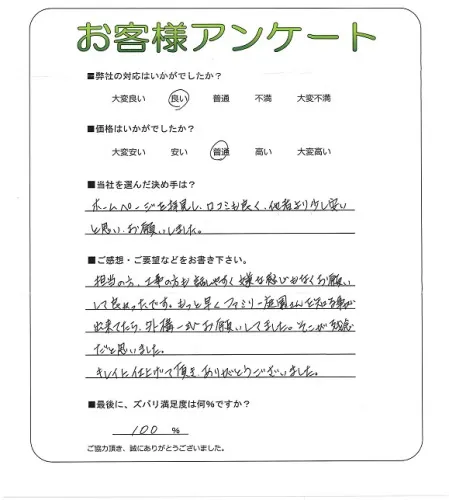 お客様アンケート
■弊社の対応はいかがでしたか？
大変良い 良い 普通 不満 大変不満
■価格はいかがでしたか？
大変安い 安い 普通 高い 大変高い
■当社を選んだ決め手は？
ホームページを拝見し、口コミも良く、他者より少し安い
と思い、お願いしました。
■ご感想・ご要望などをお書き下さい。
担当の方、工事の方も話しやすく嫌な思いもなくお願い
して良かったです。もっと早くファミリー庭園さんを知る事が
出来てたら、外構一式お願いしてました。そこが残念
だと思いました。
キレイに仕上げて頂き、ありがとうございました。
■最後に、ズバリ満足度は何％ですか？
100 ％
ご協力頂き、誠にありがとうございました。